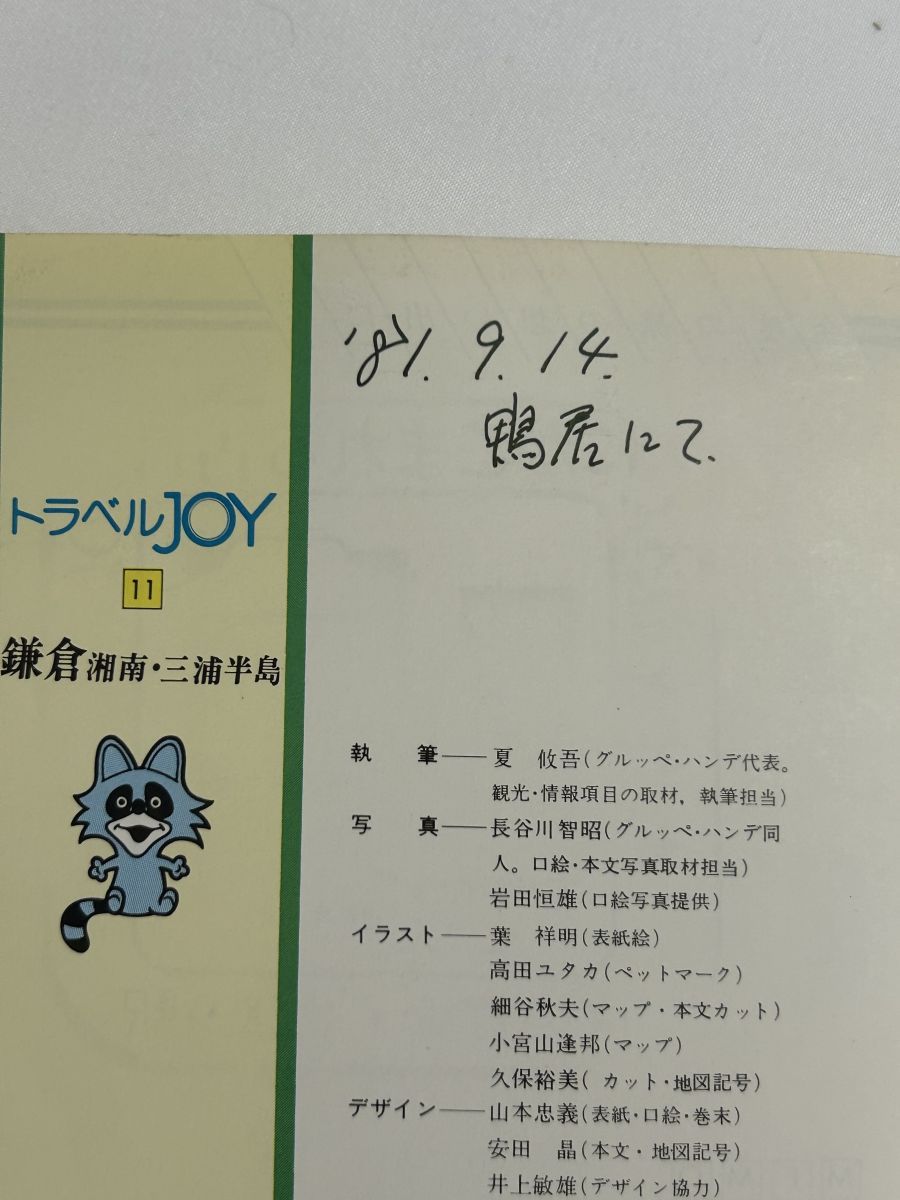 '81. 9. 14.
鴨居にて.
トラベルJOY
11
鎌倉 湘南・三浦半島
執 筆――夏 攸吾(グルッペ・ハンデ代表。
観光・情報項目の取材,執筆担当)
写 真――長谷川智昭(グルッペ・ハンデ同
人。口絵・本文写真取材担当)
岩田恒雄(口絵写真提供)
イラスト――葉 祥明(表紙絵)
高田ユタカ(ペットマーク)
細谷秋夫(マップ・本文カット)
小宮山逢邦(マップ)
久保裕美( カット・地図記号)
デザイン――山本忠義(表紙・口絵・巻末)
安田 晶(本文・地図記号)
井上敏雄(デザイン協力)